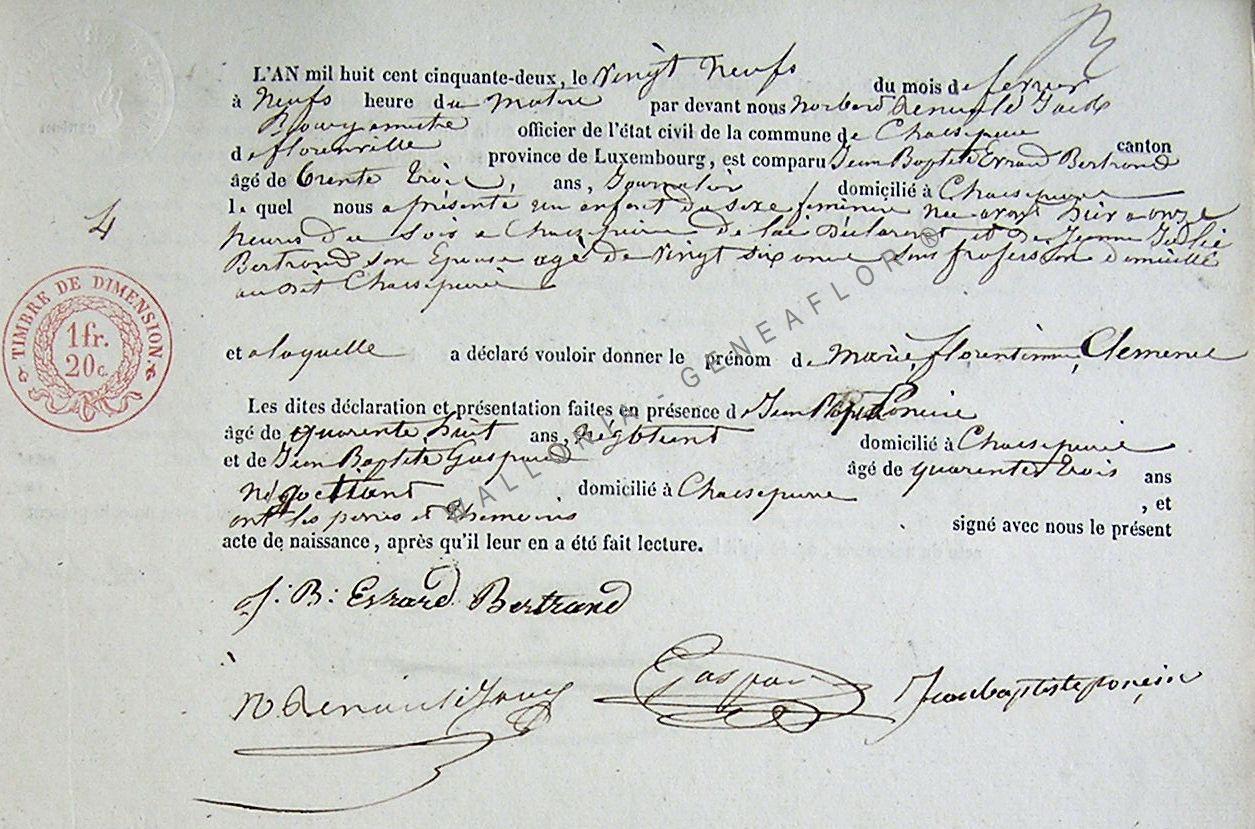 L'AN mil huit cent cinquante-deux, le vingt neufs du mois de fevrier
à Neufs heure du matin par devant nous Norberd Renauld
Bourgmestre officier de l'état civil de la commune de Chassepierre canton
de florenville province de Luxembourg, est comparu Jean Baptiste Evrard Bertrand
âgé de trente trois, ans, Journalier domicilié à Chassepierre
le quel nous a présenté un enfant du sexe féminin née avant hier a onze
heures du soir a Chassepierre de lui déclarant et de Jeanne Julie
Bertrand son Epouse agé de vingt six sans profession domicilié
au dit Chassepierre
4
TIMBRE DE DIMENSION
1 fr.
20 c.
et a laquelle a déclaré vouloir donner le prénom de Marie, florentinne, Clemence
Les dites déclaration et présentation faites en présence de Jean Baptiste Poncin
âgé de quarente huit ans, negotiant domicilié à Chassepierre
et de Jean Baptiste Gaspard âgé de quarente trois ans
negoctiant domicilié à Chassepierre , et
ont les perres et themoins signé avec nous le présent
acte de naissance, après qu'il leur en a été fait lecture.
J: B: Evrard Bertrand
N. Renauld Gaspar Jean baptiste poncin
MALLORIA - GENEAFLOR ®